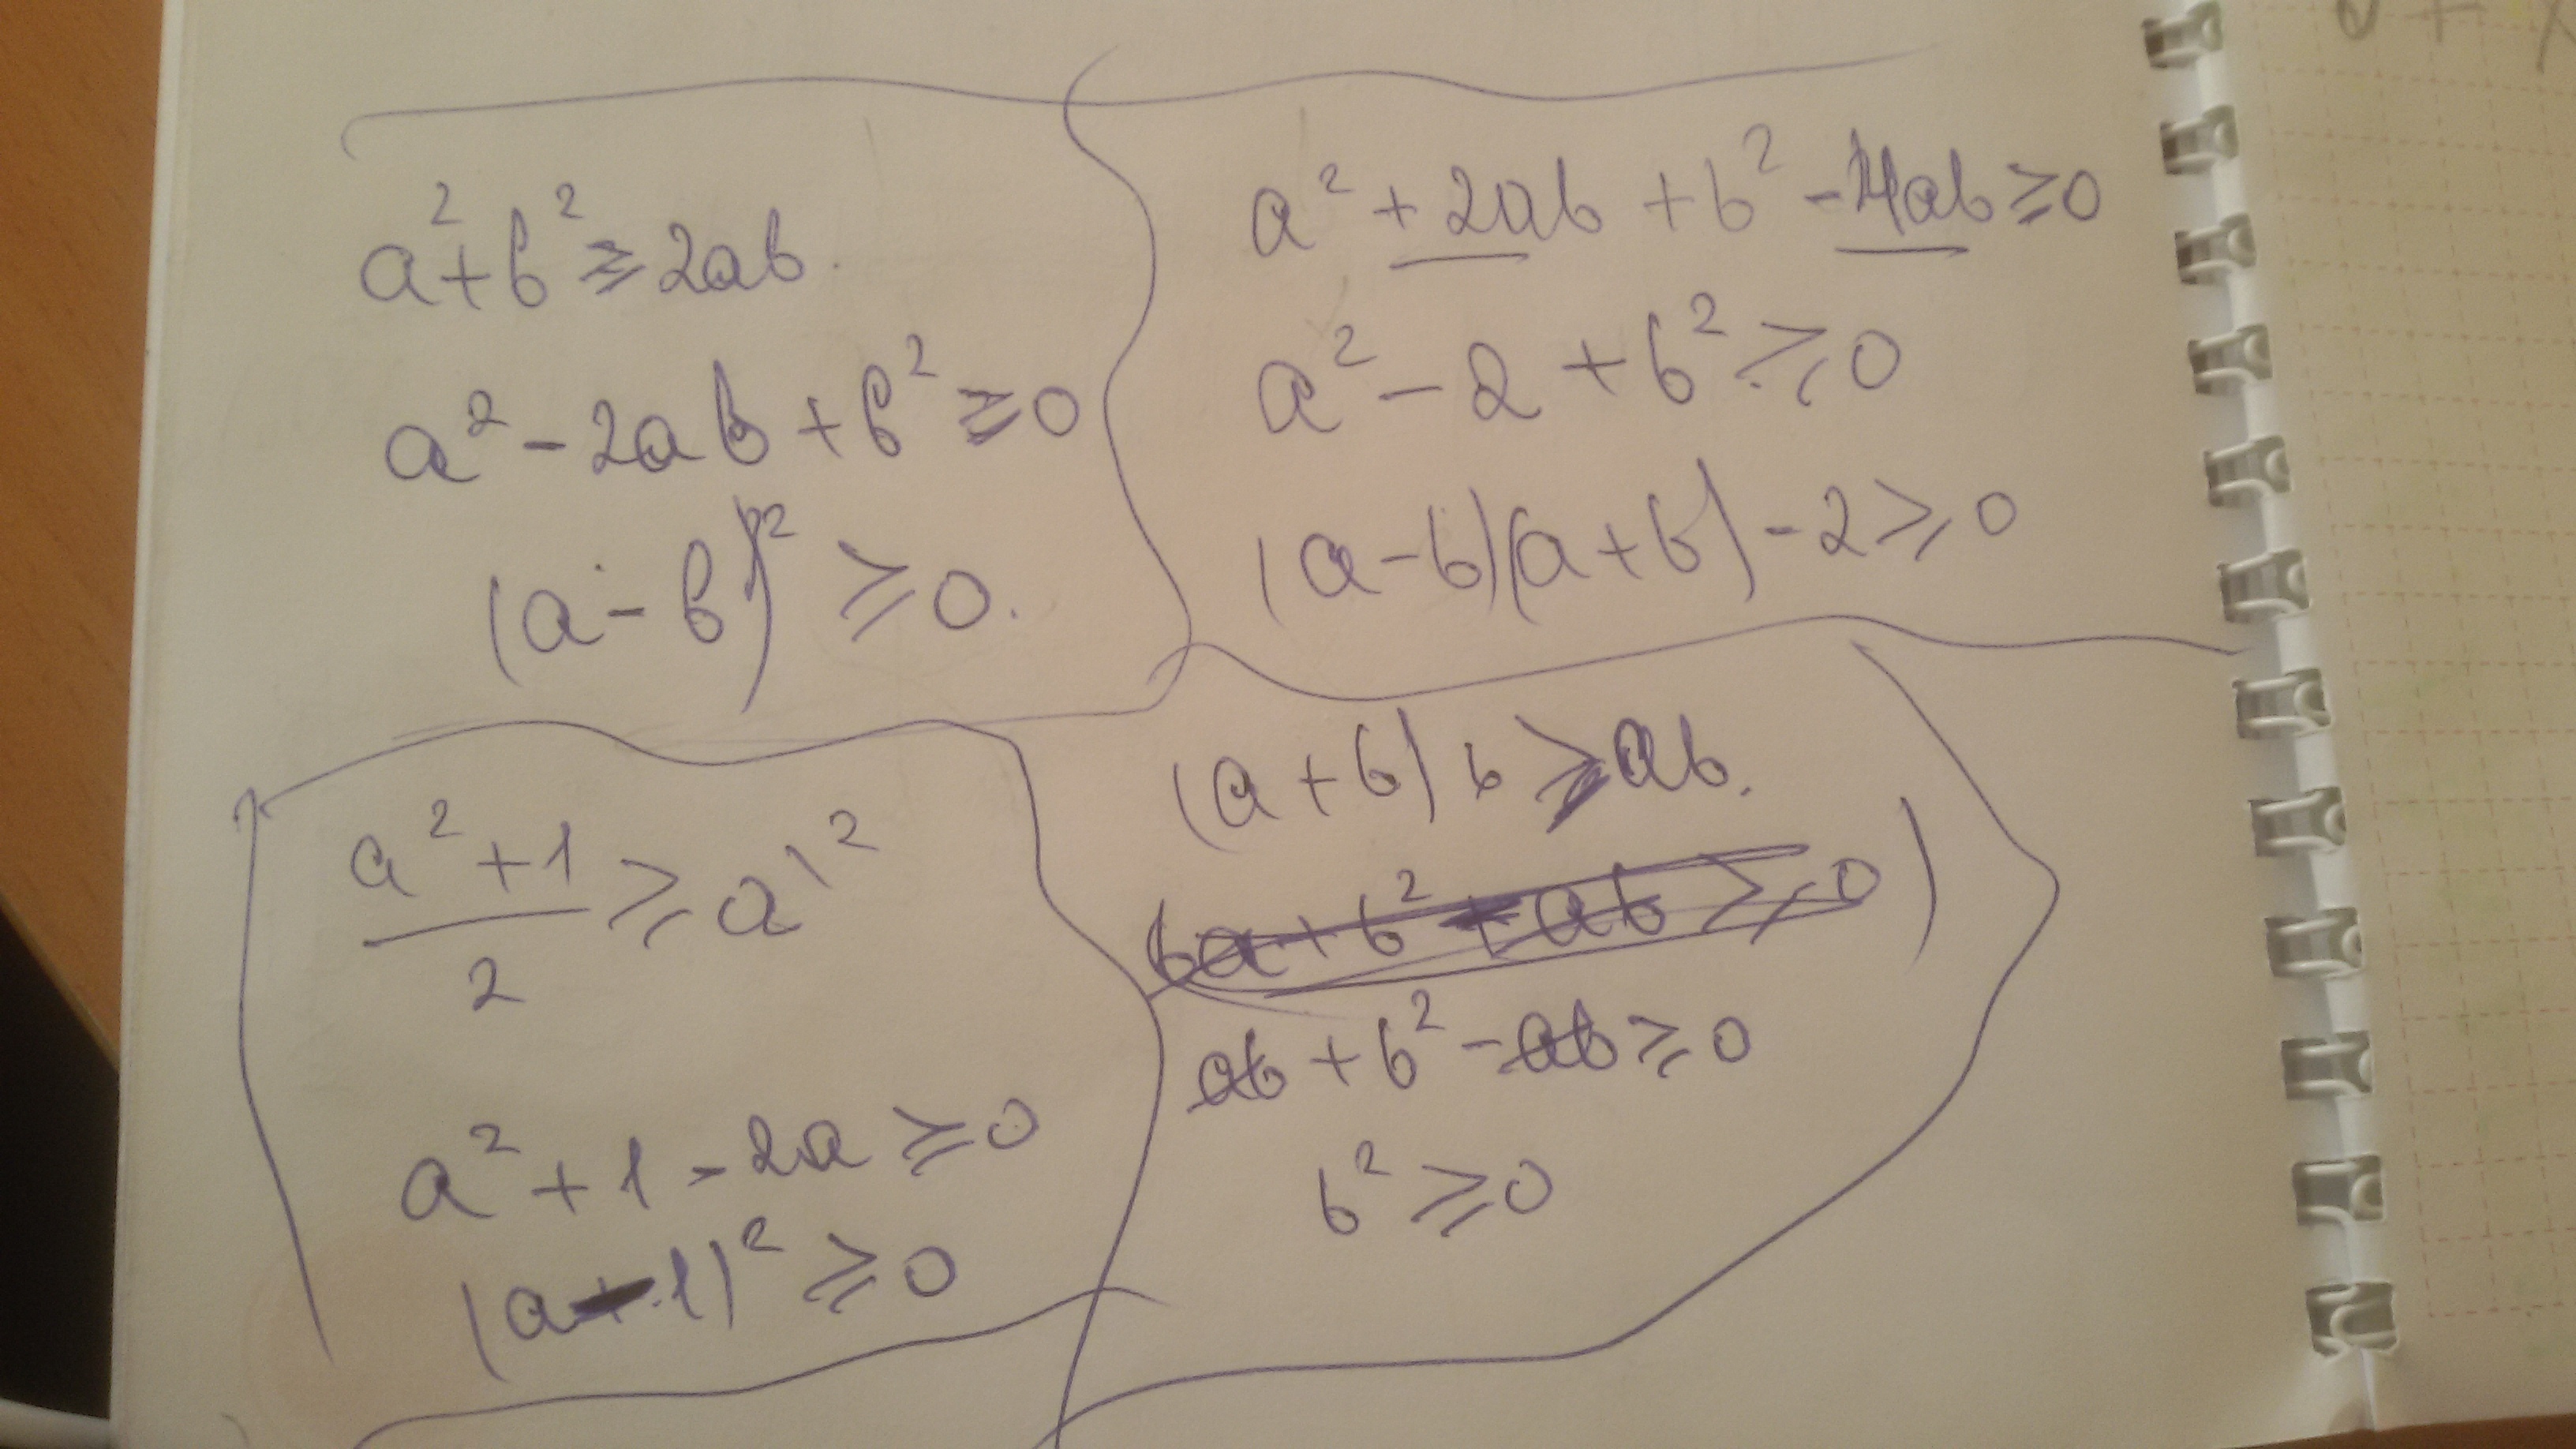 a² + b² ≥ 2ab.
a² - 2ab + b² ≥ 0
(a - b)² ≥ 0.
a² + 2ab + b² - 4ab ≥ 0
a² - 2 + b² ≥ 0
(a - b)(a + b) - 2 ≥ 0
a² + 1 / 2 ≥ a \ 2
a² + 1 - 2a ≥ 0
(a - 1)² ≥ 0
(a + b) b ≥ ab.
ba + b² - ab ≥ 0
ab + b² - ab ≥ 0
b² ≥ 0